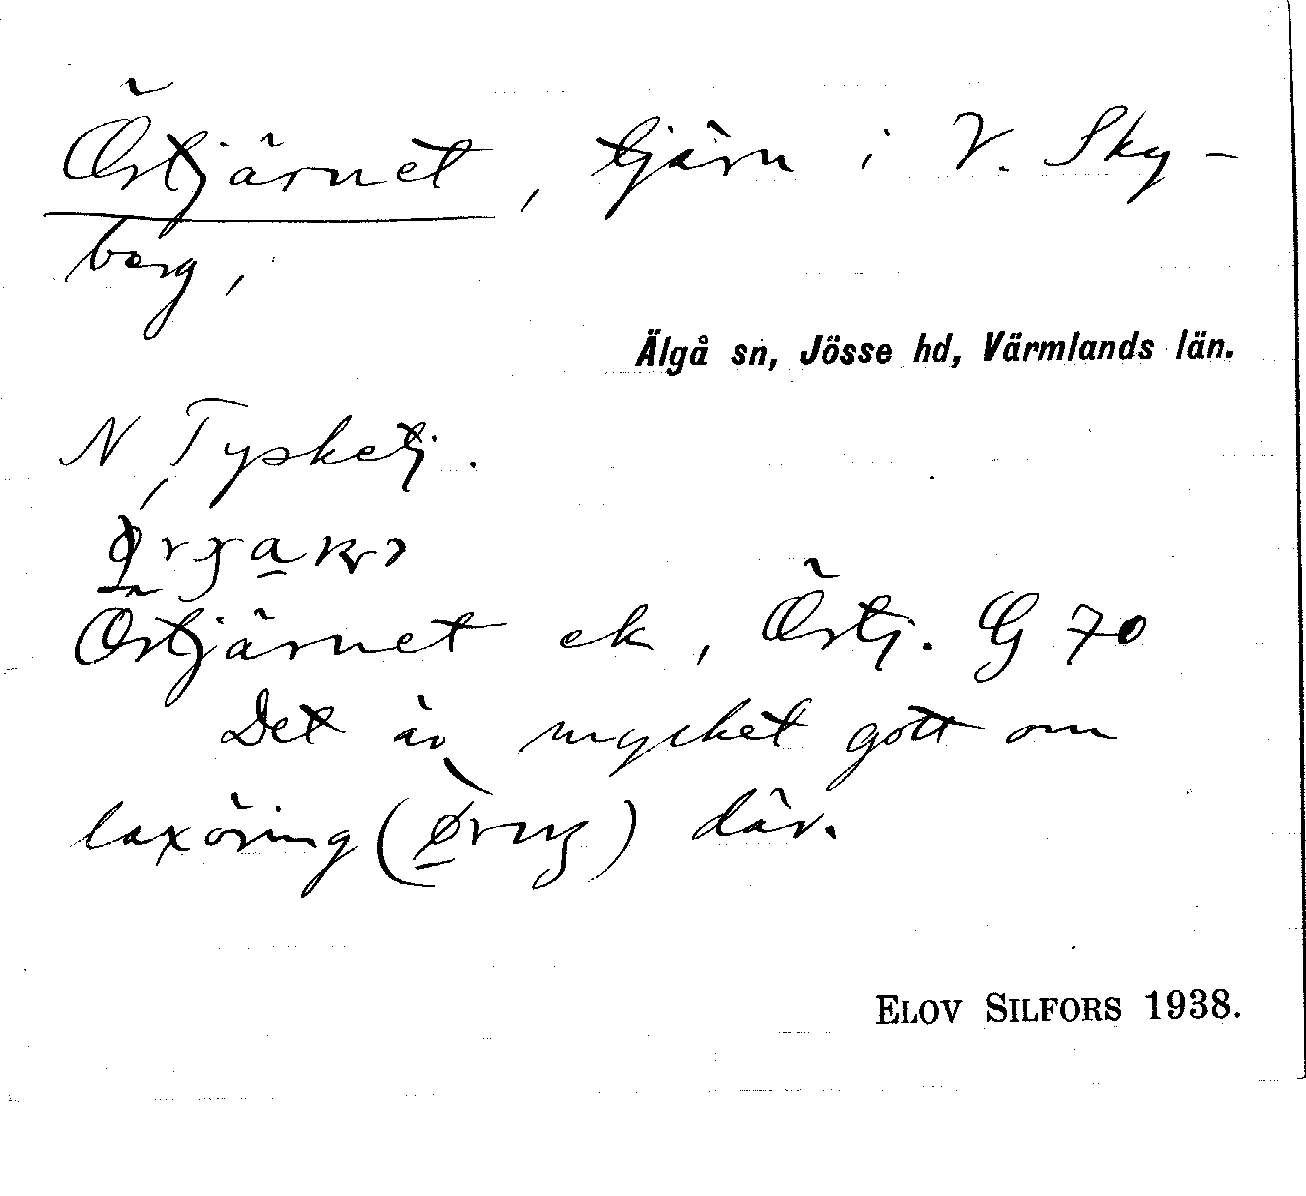 Örtjärnet, tjärn i V. Sky-
berg,
Älgå sn, Jösse hd, Värmlands län.
N, Tysketj.
Örtjärnet ek, Örtj. G 70
Det är mycket gott om
laxöring ( ) där.
ELOV SILFORS 1938.